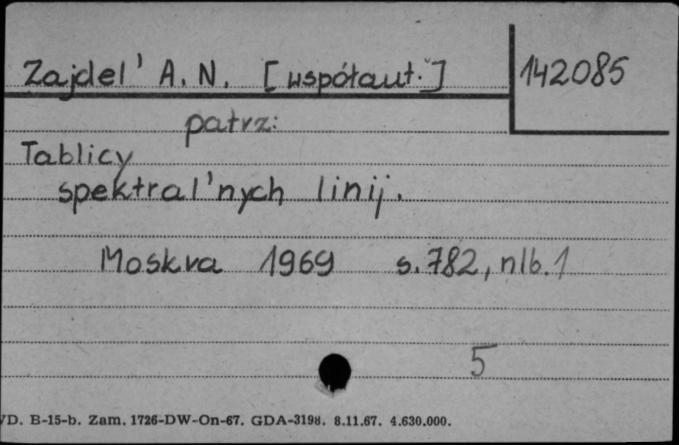 Zajdel' A. N. [współaut.] 142085
patrz:
Tablicy
spektral'nych linij.
Moskva 1969 s. 782, nlb. 1
5
VD. B-15-b. Zam. 1726-DW-On-67. GDA-3198. 8.11.67. 4.630.000.